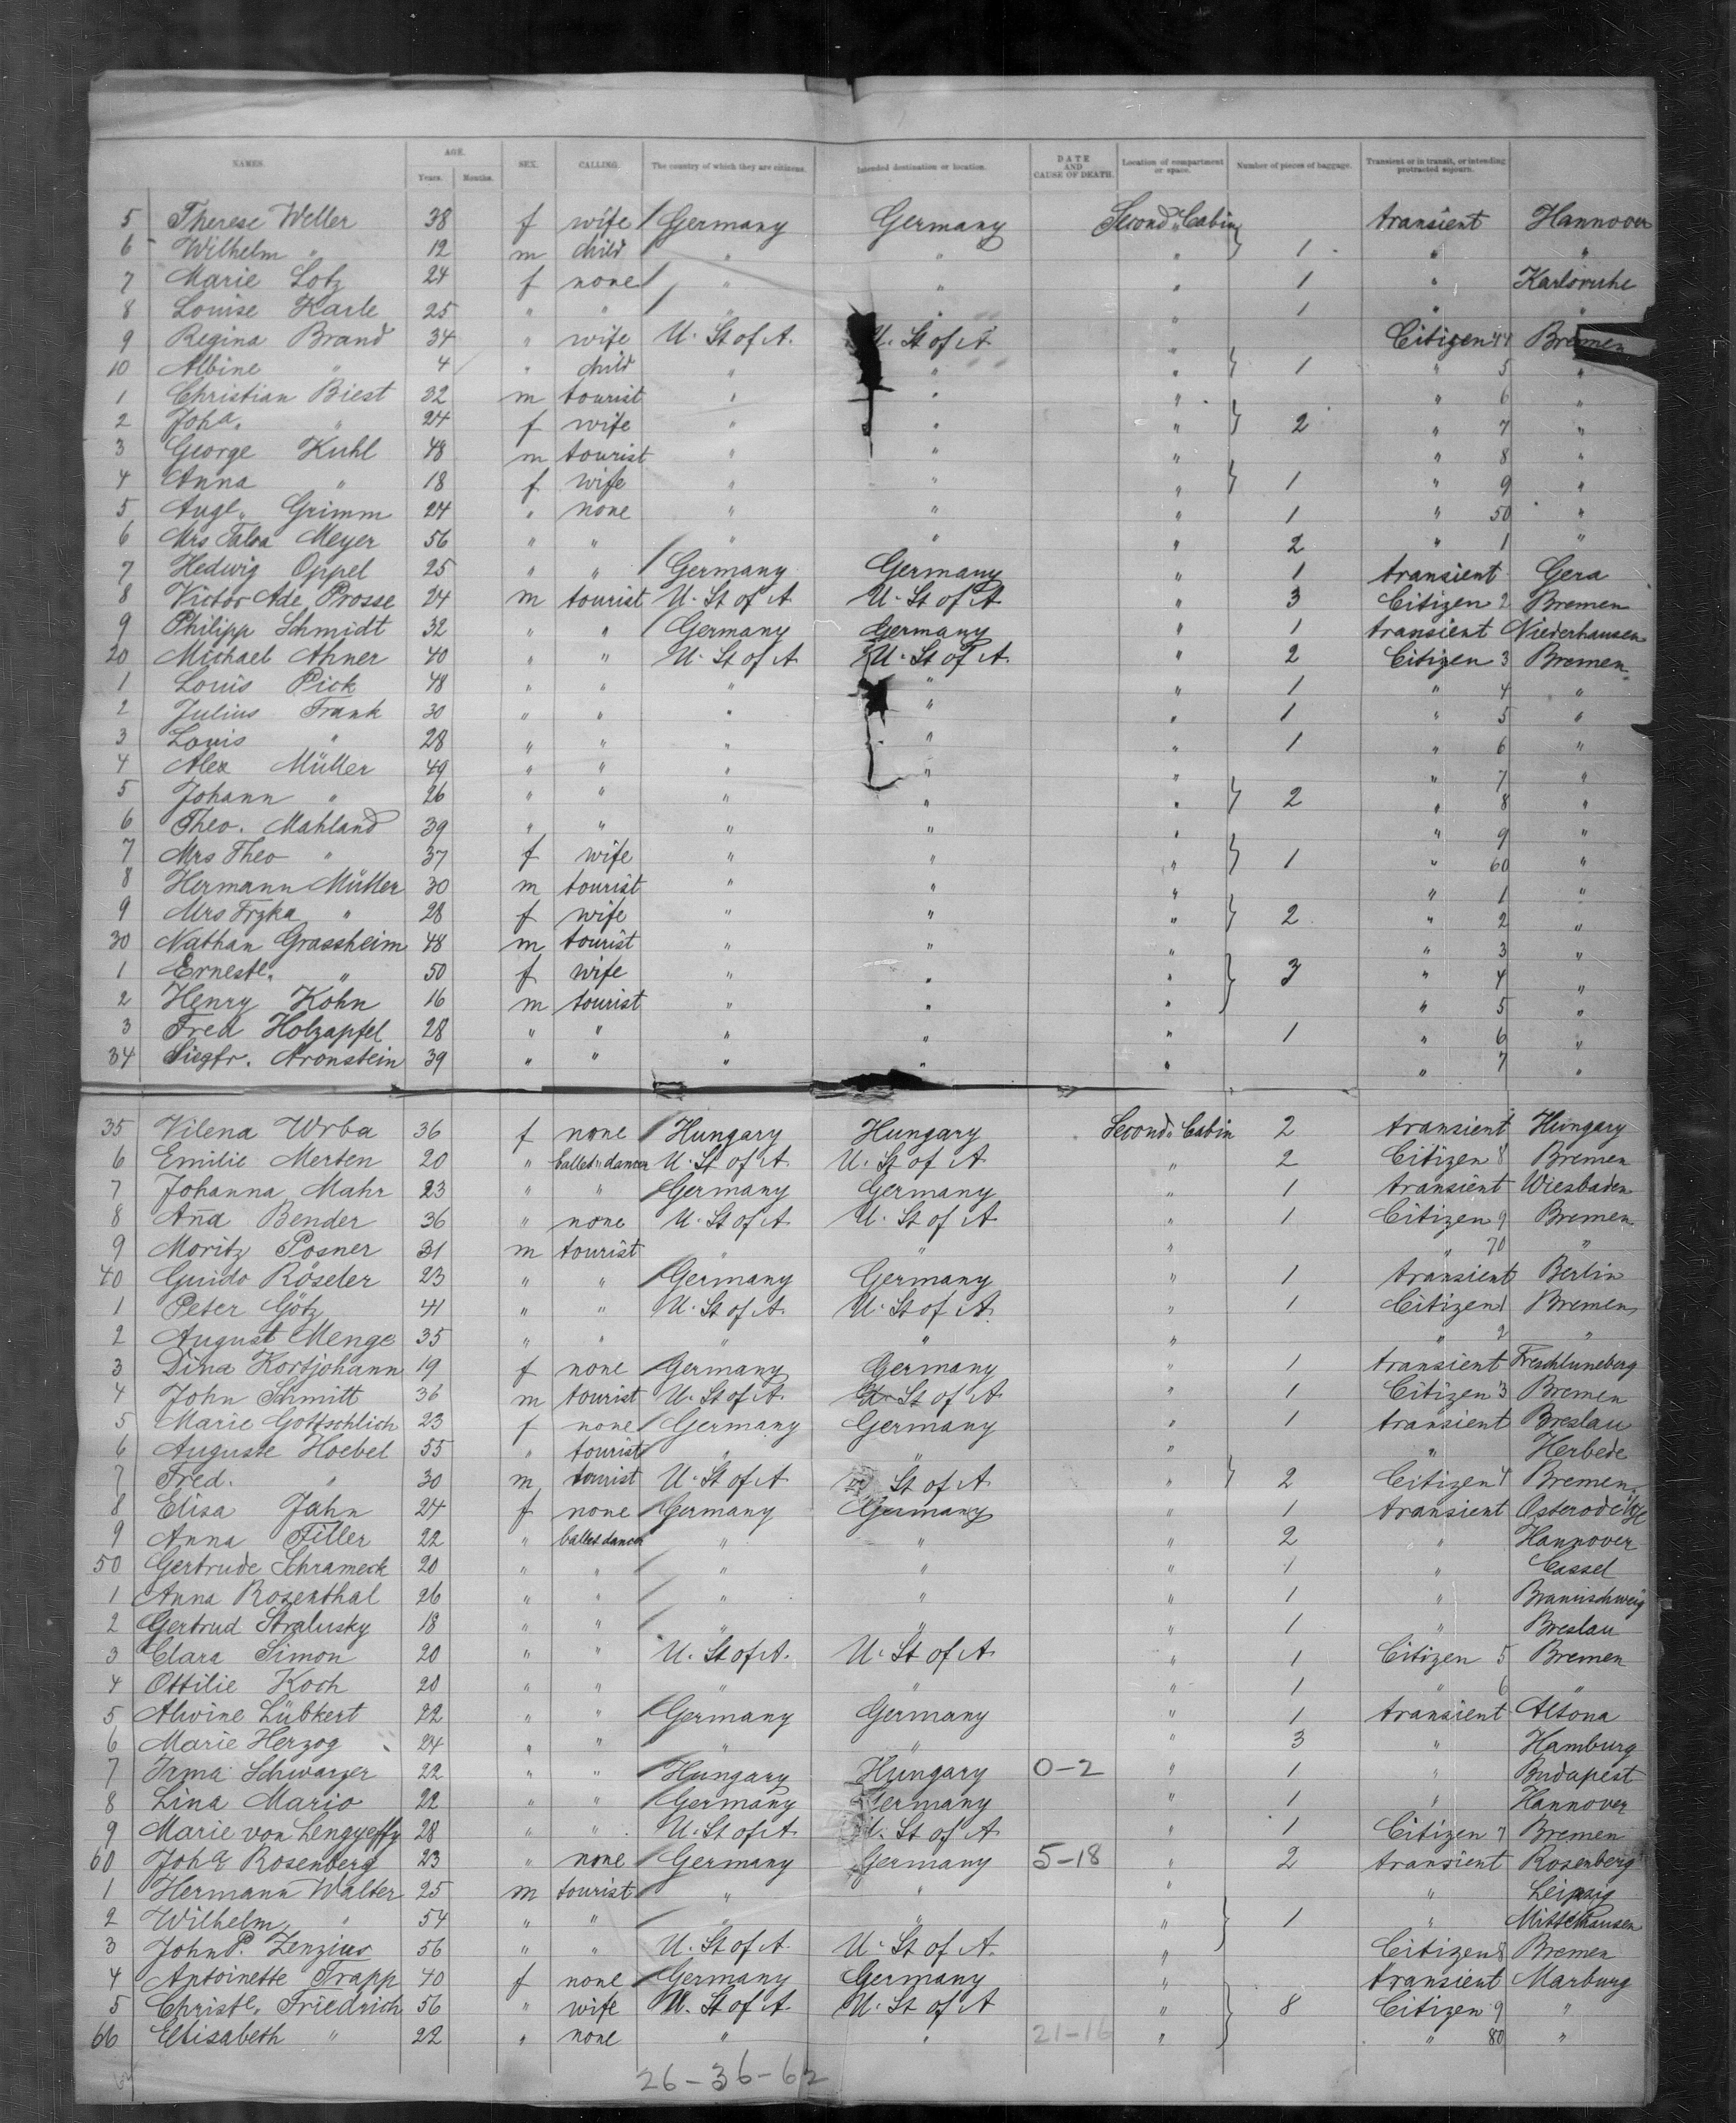 NAMES. AGE. Years. Months. SEX. CALLING. The country of which they are citizens. Intended destination or location. DATE AND CAUSE OF DEATH. Location of compartment or space. Number of pieces of baggage. Transient or in transit, or intending protracted sojourn.
5 Therese Weller 38 f wife Germany Germany Second Cabin transient Hannover
6 Wilhelm " 12 m child " " " } 1 " "
7 Marie Lotz 24 f none " " " 1 " Karlsruhe
8 Louise Karle 25 " " " " " 1 " "
9 Regina Brand 34 " wife U. St of A. U. St of A " Citizen 44 Bremen
10 Albine " 4 " child " " " } 1 " 5 "
1 Christian Biest 32 m tourist " " " " 6 "
2 Joha. " 24 f wife " " " } 2 " 7 "
3 George Kuhl 48 m tourist " " " " 8 "
4 Anna " 18 f wife " " " } 1 " 9 "
5 Augl. Grimm 24 " none " " " 1 " 50 "
6 Mrs Meyer 56 " " " " " 2 " 1 "
7 Hedwig Oppel 25 " " Germany Germany " 1 transient Gera
8 Victor Ade Prosse 24 m tourist U. St of A U. St of A " 3 Citizen 2 Bremen
9 Philipp Schmidt 32 " " Germany Germany " 1 transient Niederhausen
20 Michael Ahner 40 " " U. St of A U. St of A. " 2 Citizen 3 Bremen
1 Louis Pick 48 " " " " " 1 " 4 "
2 Julius Frank 30 " " " " " 1 " 5 "
3 Louis " 28 " " " " " 1 " 6 "
4 Alex Müller 49 " " " " " " 7 "
5 Johann " 26 " " " " " } 2 " 8 "
6 Theo. Mahland 39 " " " " " " 9 "
7 Mrs Theo " 37 f wife " " " } 1 " 60 "
8 Hermann Müller 30 m tourist " " " " 1 "
9 Mrs Frzka " 28 f wife " " " } 2 " 2 "
30 Nathan Grassheim 48 m tourist " " " " 3 "
1 Ernestl. " 50 f wife " " " } 3 " 4 "
2 Henry Kohn 16 m tourist " " " " 5 "
3 Fred Holzapfel 28 " " " " " 1 " 6 "
34 Siegfr. Aronstein 39 " " " " " " 7 "
35 Vilena Wrba 36 f none Hungary Hungary Second Cabin 2 transient Hungary
6 Emilie Merten 20 " ballet dancer U. St of A U. St of A " 2 Citizen 8 Bremen
7 Johanna Mahr 23 " " Germany Germany " 1 transient Wiesbaden
8 Aña Bender 36 " none U. St of A U. St of A " 1 Citizen 9 Bremen
9 Moritz Posner 31 m tourist " " " " 70 "
40 Guido Röseler 23 " " Germany Germany " 1 transient Berlin
1 Peter Götz 41 " " U. St of A U. St of A. " 1 Citizen 1 Bremen
2 August Menge 35 " " " " " " 2 "
3 Dina Kortjohann 19 f none Germany Germany " 1 transient Freschluneberg
4 John Schmitt 36 m tourist U. St of A. U. St of A. " 1 Citizen 3 Bremen
5 Marie Gottschlich 23 f none Germany Germany " 1 transient Breslau
6 Auguste Hoebel 55 " tourist " " " " Herbede
7 Fred. " 30 m tourist U. St of A St of A " } 2 Citizen 4 Bremen
8 Elisa Jahn 24 f none Germany Germany " 1 transient Osterode
9 Anna Filler 22 " ballet dancer " " " 2 " Hannover
50 Gertrude Schrameck 20 " " " " " 1 " Cassel
1 Anna Rosenthal 26 " " " " " 1 " Braunschweig
2 Gertrud Stralusky 18 " " " " " 1 " Breslau
3 Clara Simon 20 " " U. St of A. U. St of A " 1 Citizen 5 Bremen
4 Ottilie Koch 20 " " " " " 1 " 6 "
5 Alwine Lübkert 22 " " Germany Germany " 1 transient Altona
6 Marie Herzog 24 " " " " " 3 " Hamburg
7 Irma Schwarzer 22 " " Hungary Hungary 0-2 " 1 " Budapest
8 Lina Mario 22 " " Germany Germany " 1 " Hannover
9 Marie von Lengyeffy 28 " " U. St of A U. St of A " 1 Citizen 7 Bremen
60 Joha Rosenberg 23 " none Germany Germany 5-18 " 2 transient Rosenberg
1 Hermann Walter 25 m tourist " " " " Leipzig
2 Wilhelm " 54 " " " " " } 1 " Mittelhausen
3 John P. Zenzius 56 " " U. St of A U. St of A. " Citizen 8 Bremen
4 Antoinette Trapp 40 f none Germany Germany " transient Marburg
5 Christl. Friedrich 56 " wife U. St of A U. St of A " } 8 Citizen 9 "
66 Elisabeth " 22 " none " " 21-16 " " 80 "
26-36-62